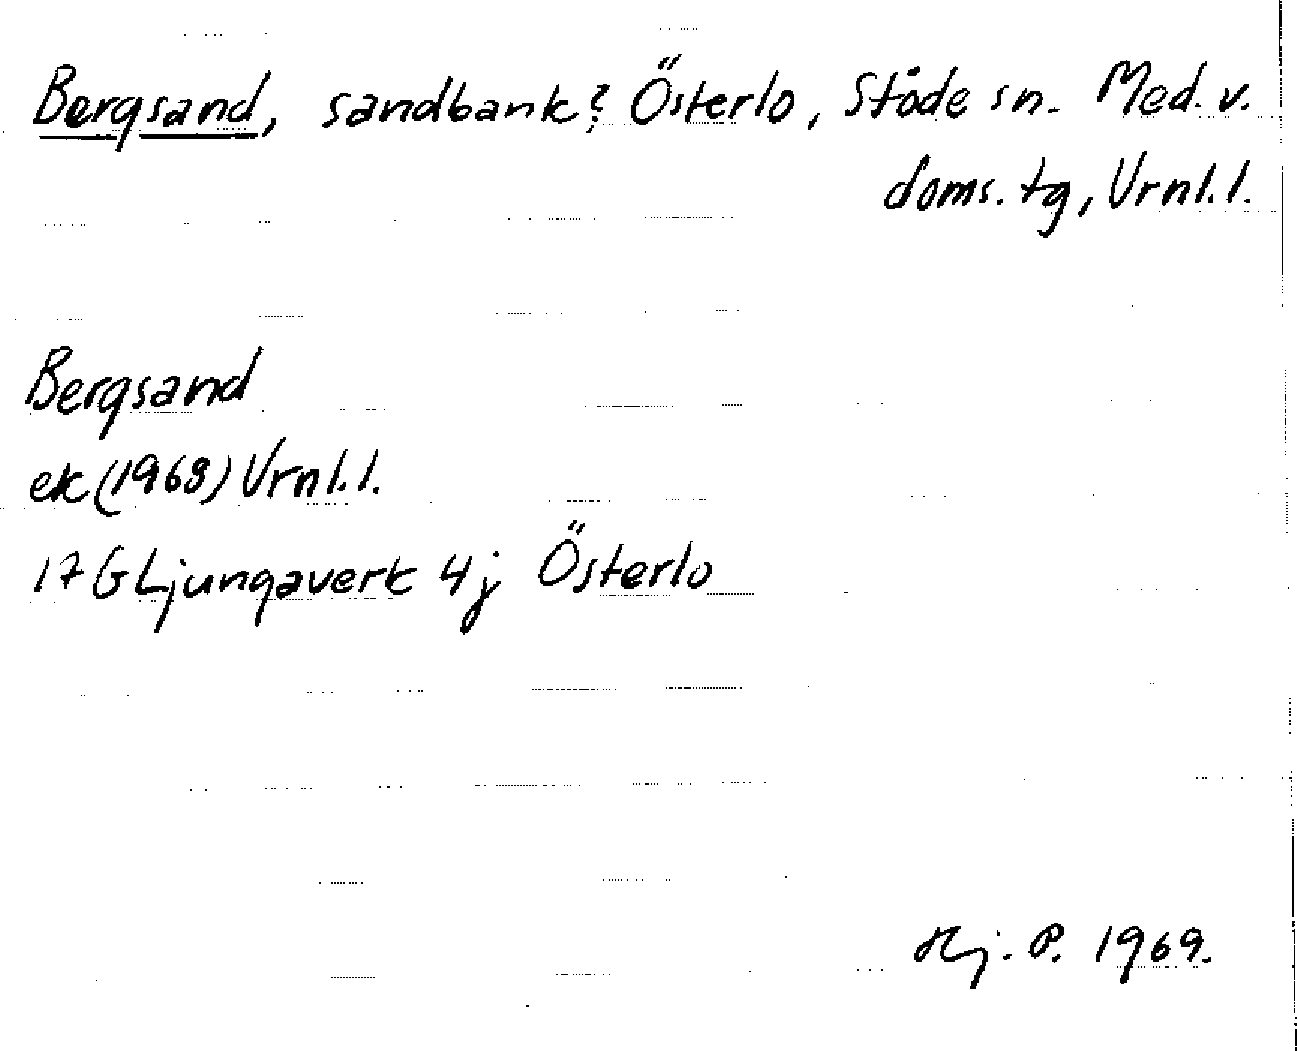 Bergsand, sandbank? Österlo, Stöde sn. Med. v.
doms. tg, Vrnl. l.
Bergsand
ek (1968) Vrnl. l.
17 G Ljungaverk 4j Österlo
Hj. P. 1969.